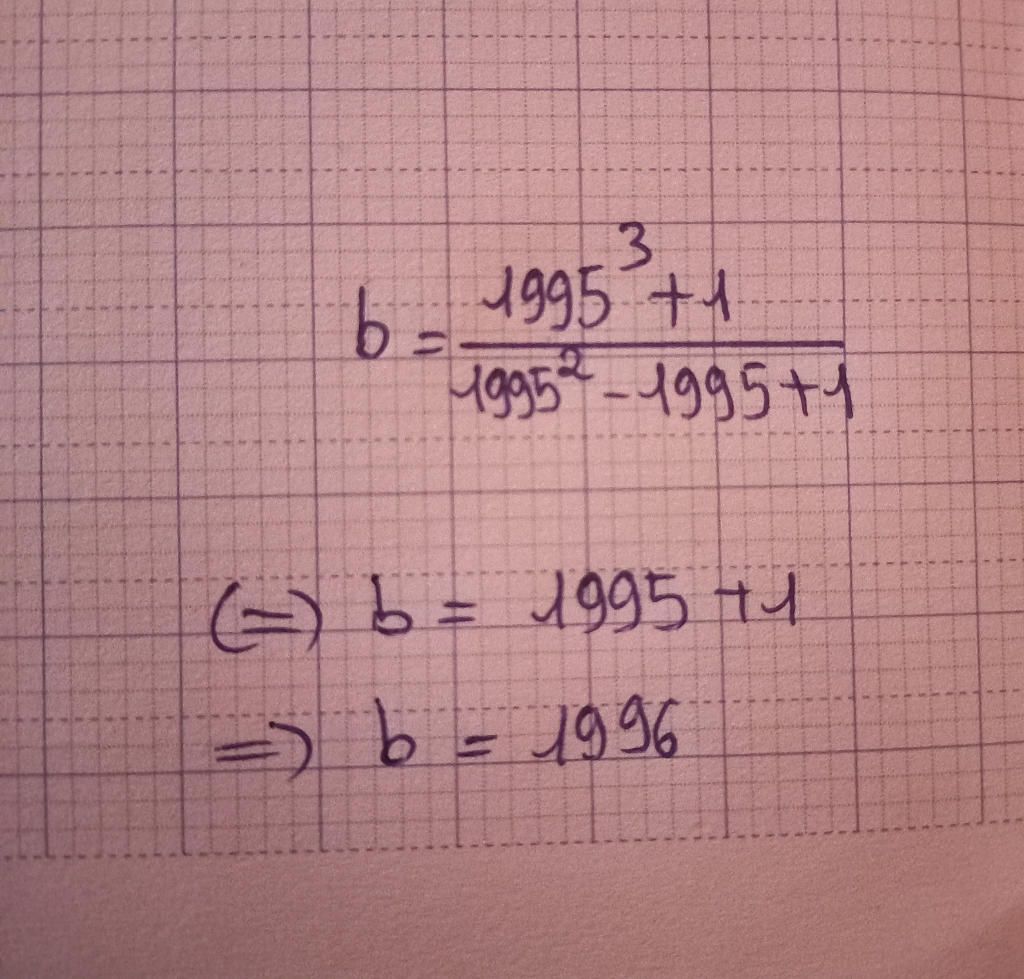 b = \frac{1995^3+1}{1995^2-1995+1}
(=) b = 1995 +1
=) b = 1996